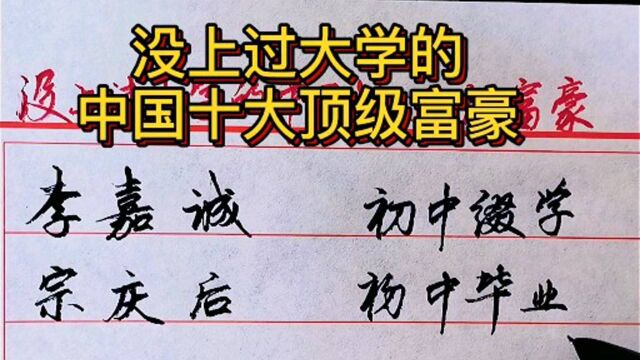 没上过大学的
中国十大顶级富豪
没 富豪
李嘉诚 初中缀学
宗庆后 初中毕业